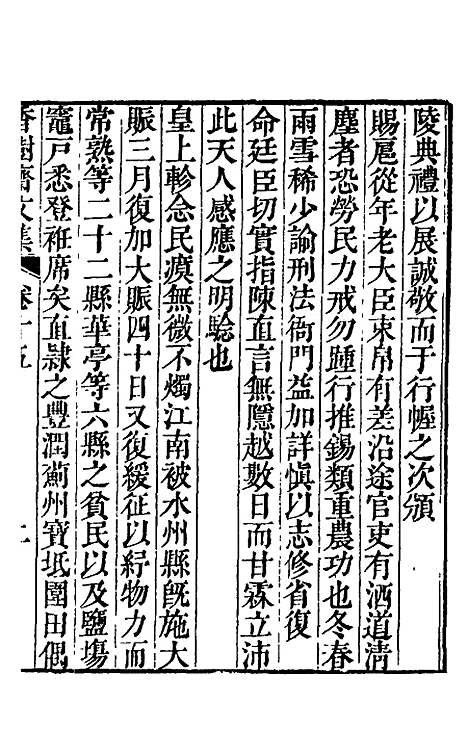 陵典禮以展誠敬而于行幄之次頒
賜扈從年老大臣束帛有差沿途官吏有洒道淸
塵者恐勞民力戒勿踵行推錫類重農功也冬春
雨雪稀少諭刑法衙門益加詳愼以志修省復
命廷臣切實指陳直言無隱越數日而甘霖立沛
此天人感應之明騐也
皇上軫念民瘼無微不燭江南被水州縣旣施大
賑三月復加大賑四十日又復緩征以紓物力而
常熟等二十二縣華亭等六縣之貧民以及鹽塲
竈戸悉登袵席矣直隷之豐潤薊州寶坻圍田偶
香樹齋文集 卷十五 二